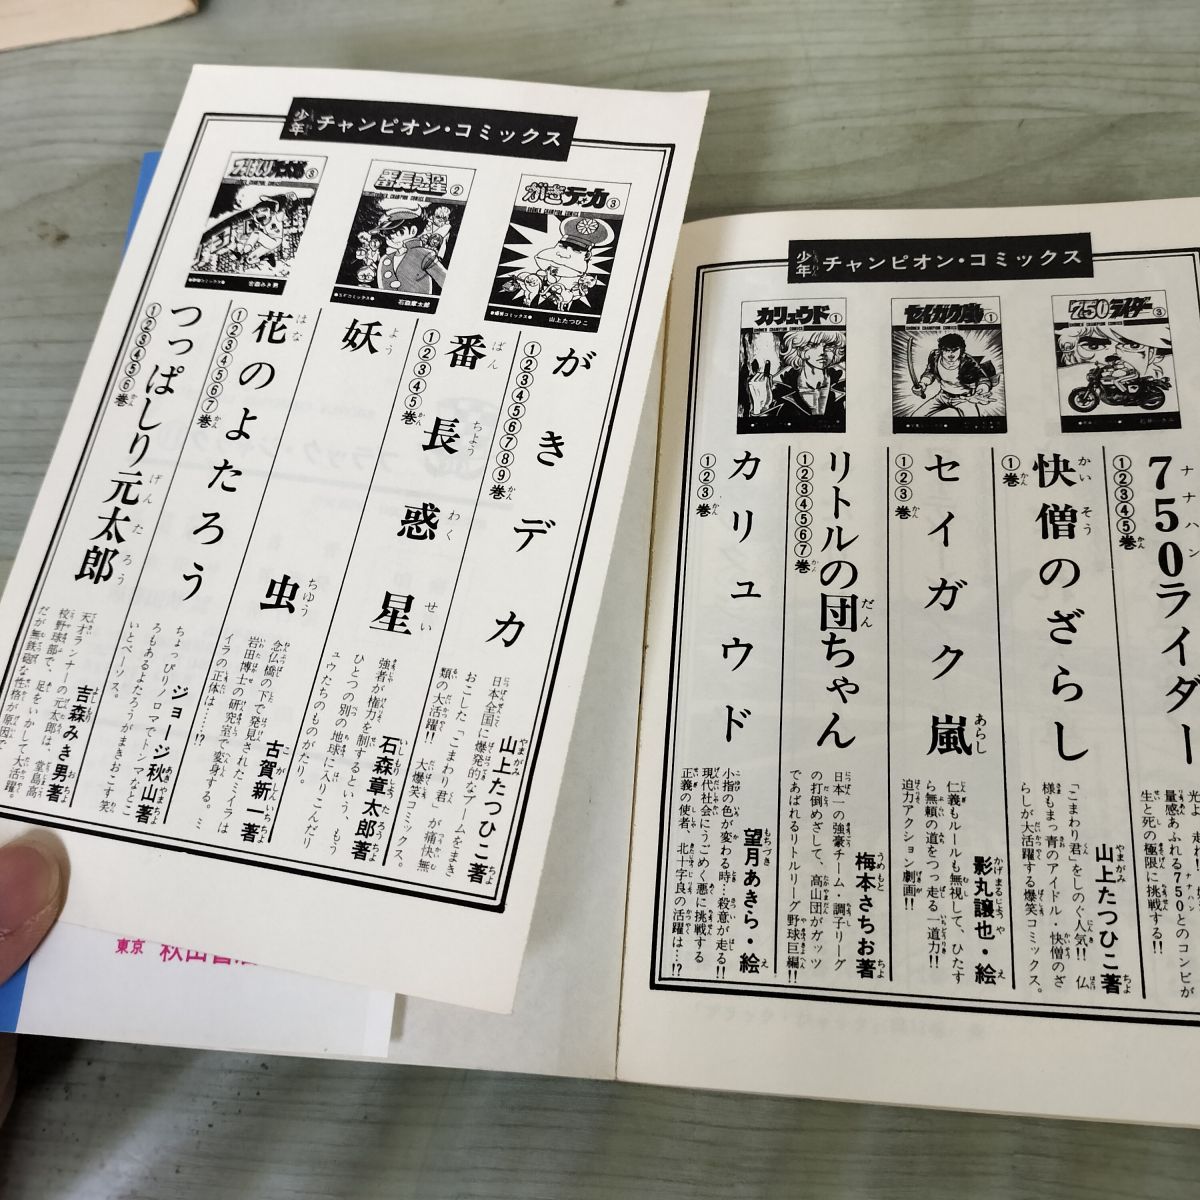 少年 チャンピオン・コミックス
がきデカ ③
山上たつひこ
番長惑星 ②
石森章太郎
つっぱしり元太郎 ③
吉森みき男
がきデカ
①②③④⑤⑥⑦⑧⑨巻
山上たつひこ著
日本全国に爆発的なブームをまき
おこした「こまわり君」が痛快無
類の大活躍!! 大爆笑コミックス。
番長惑星
①②③④⑤巻
石森章太郎著
強者が権力を制するという、もう
ひとつの別の地球に入りこんだリ
ュウたちのものがたり。
妖虫
古賀新一著
念仏橋の下で発見されたミイラは
岩田博士の研究室で変身する。ミ
イラの正体は……!?
花のよたろう
①②③④⑤⑥⑦巻
ジョージ秋山著
ちょっぴりノロマでトンマなとこ
ろもあるよたろうがまきおこす笑
いとペーソス。
つっぱしり元太郎
①②③④⑤⑥巻
吉森みき男著
天才ランナーの元太郎は、堂島高
校野球部で、足をいかして大活躍。
だが無鉄砲な性格が原因で
東京
少年 チャンピオン・コミックス
750ライダー ③
セイガク嵐 ①
カリュウド ①
750ライダー
①②③④⑤巻
量感あふれる750とのコンビが
生と死の極限に挑戦する!!
快僧のざらし
①巻
山上たつひこ著
「こまわり君」をしのぐ人気!! 仏
様もまっ青のアイドル・快僧のざ
らしが大活躍する爆笑コミックス。
セイガク嵐
①②③巻
影丸譲也・絵
仁義もルールも無視して、ひたす
ら無頼の道をつっ走る一道力!!
迫力アクション劇画!!
リトルの団ちゃん
①②③④⑤⑥⑦巻
梅本さちお著
日本一の強豪チーム調子リーグ
の打倒めざして、高山団がガッツ
であばれるリトルリーグ野球巨編!!
カリュウド
①②③巻
望月あきら・絵
小指の色が変わる時…殺意が走る!!
現代社会にうごめく悪に挑戦する
正義の使者、北十字良の活躍は…!?